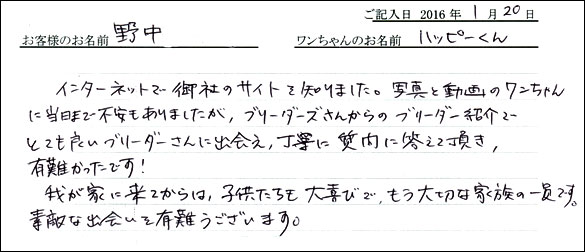 ご記入日 2016年 1月 20日
お客様のお名前 野中 ワンちゃんのお名前 ハッピーくん
インターネットで御社のサイトを知りました。写真と動画のワンちゃん
に当日まで不安もありましたが、ブリーダーズさんからのブリーダー紹介で
とても良いブリーダーさんに出会え、丁寧に質問に答えて頂き、
有難かったです!
我が家に来てからは、子供たちも大喜びで、もう大切な家族の一員です。
素敵な出会いを有難うございます。